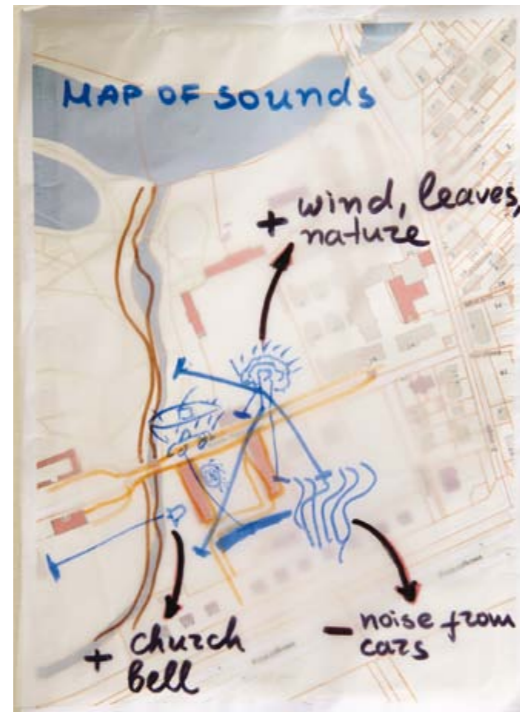 MAP OF SOUNDS
+ wind, leaves,
nature
+ church
bell
- noise from
cars